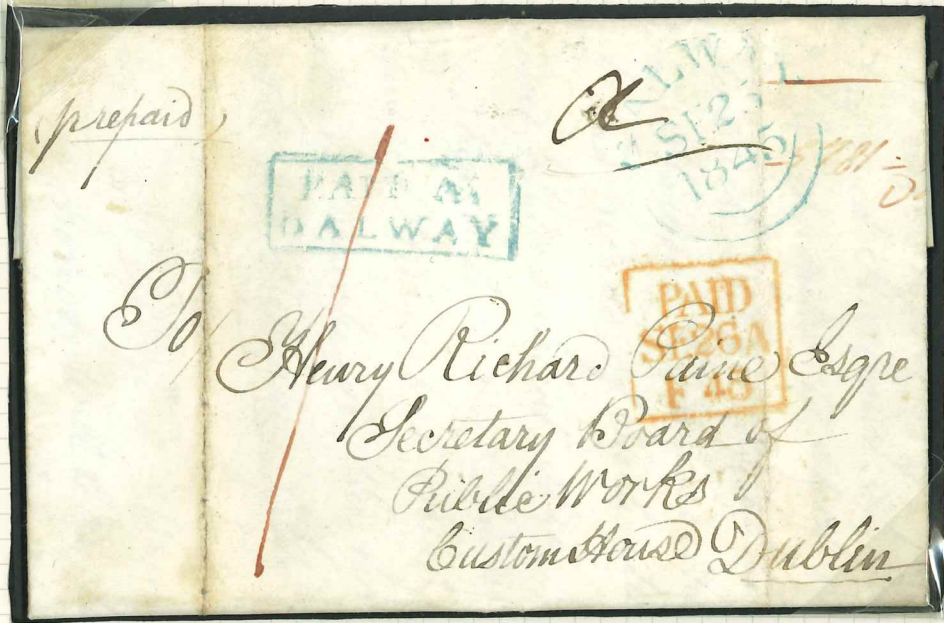 prepaid
a
GALWAY
SE 25
1845
PAID AT
GALWAY
1
PAID
SE 26 A
F 45
To
Henry Richard Paine Esqre
Secretary Board of
Public Works
Custom House Dublin